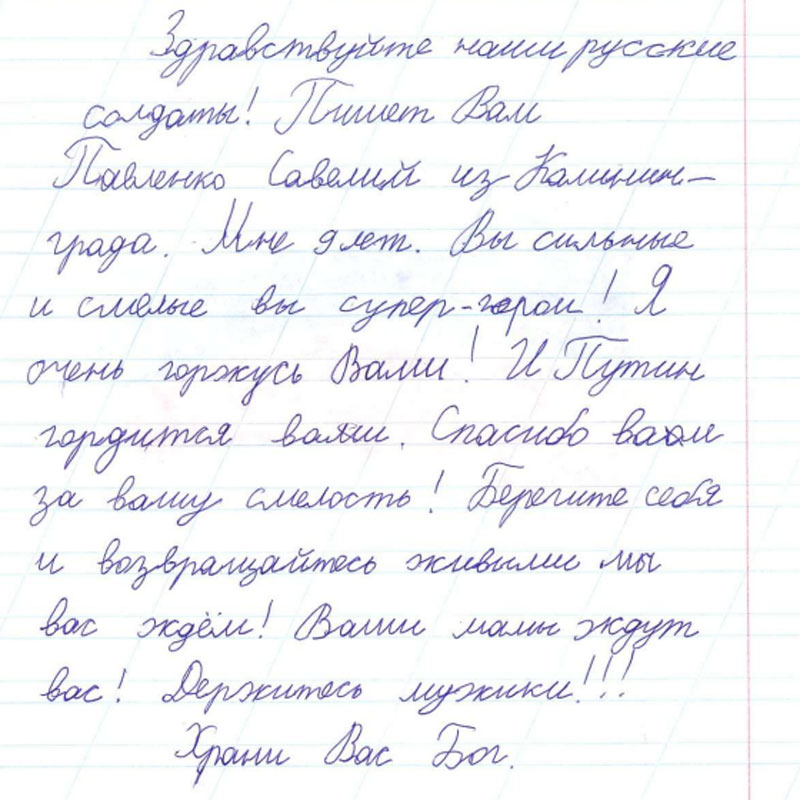 Здравствуйте наши русские
солдаты! Пишет Вам
Павленко Савелий из Калинин-
града. Мне 9 лет. Вы сильные
и смелые вы супер-герои! Я
очень горжусь Вами! И Путин
гордится вами. Спасибо вам
за вашу смелость! Берегите себя
и возвращайтесь живыми мы
вас ждём! Ваши мамы ждут
вас! Держитесь мужики!!!
Храни Вас Бог.